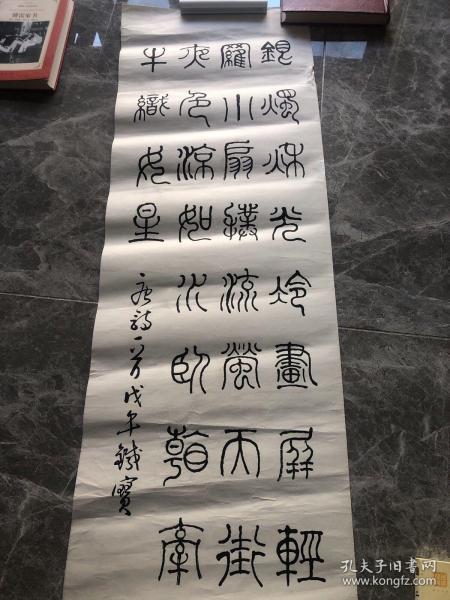 銀燭秋光冷畫屏輕
羅小扇撲流螢天街
夜色涼如水臥看牽
牛織女星
唐詩一首戊午鐵寶
傅雷家书
孔夫子旧书网
www.kongfz.com